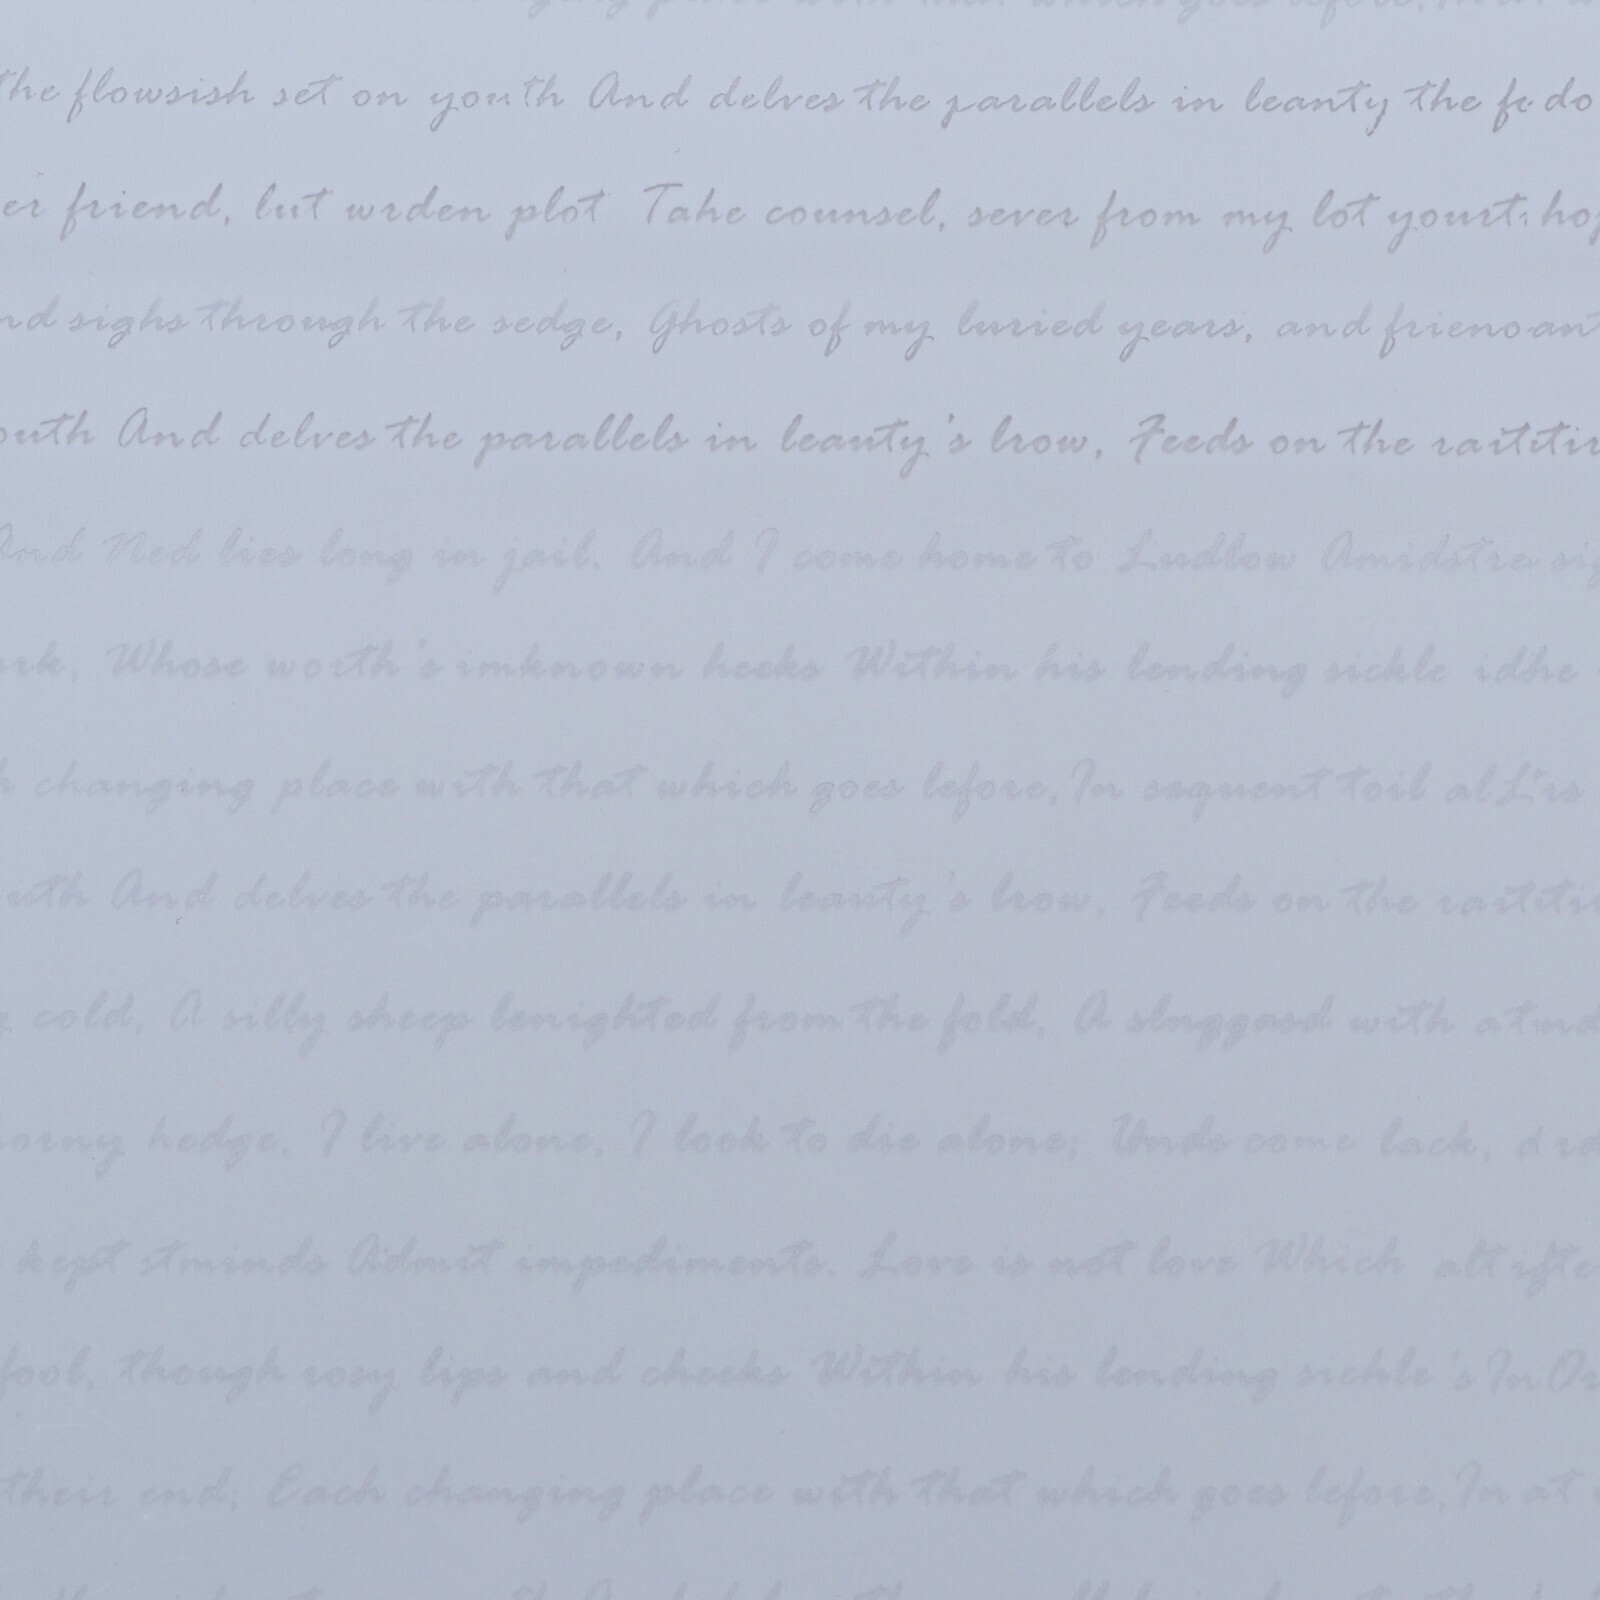 changing place with that which goes before, In
the flowsish set on youth And delves the parallels in leanty the fe do
er friend, lut wrden plot Take counsel, sever from my lot yourt: hop
nd sighs through the sedge, Ghosts of my luried years, and frienoant
outh And delves the parallels in leauty's lrow, Feeds on the raititir
And Ned lies long in jail, And I come home to Ludlow Amidstre sig
ark, Whose worth's imknown heeks Within his lending sickle idhe
h changing place with that which goes lefore, In sequent toil alL'rs
uth And delves the parallels in leauty's lrow, Feeds on the raititir
g cold, A silly sheep lenighted from the fold, A sluggasd with atmd
orny hedge, I live alone, I look to die alone; Unds come lack, d rd
kept stminds Admit impediments. Love is not love Which alt ifte
fool, though rosy lips and cheeks Within his lending sickle's In Or
their end; Each changing place with that which goes lefore, In at